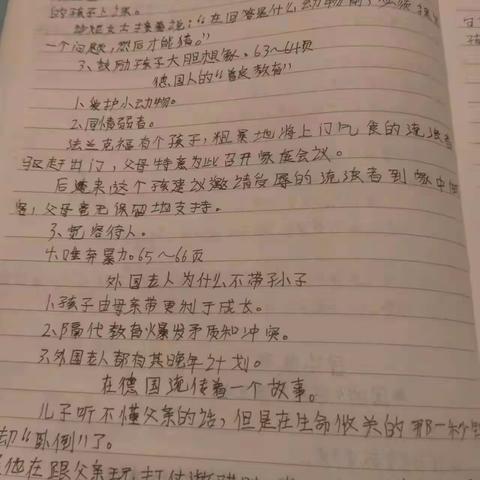 的孩子上课。
女士接着说：“在回答是什么动物前，必须提
一个问题，然后才能猜。”
3、鼓励孩子大胆想象。63～64页
德国人的“善良教育”
1、爱护小动物。
2、同情弱者。
法兰克福有个孩子，粗暴地将上门乞食的流浪者
驱赶出门，父母特意为此召开家庭会议。
后来这个孩建议邀请受辱的流浪者到家中做
客，父母毫无保留地支持。
3、宽容待人。
4、唾弃暴力。65～66页
外国老人为什么不带孙子
1、孩子由母亲带更利于成长。
2、隔代教育爆发矛盾和冲突。
3、外国老人都有其晚年计划。
在德国流传着一个故事。
儿子听不懂父亲的话，但是在生命攸关的那一秒钟
却“卧倒”了。
他在跟父亲玩打仗游戏